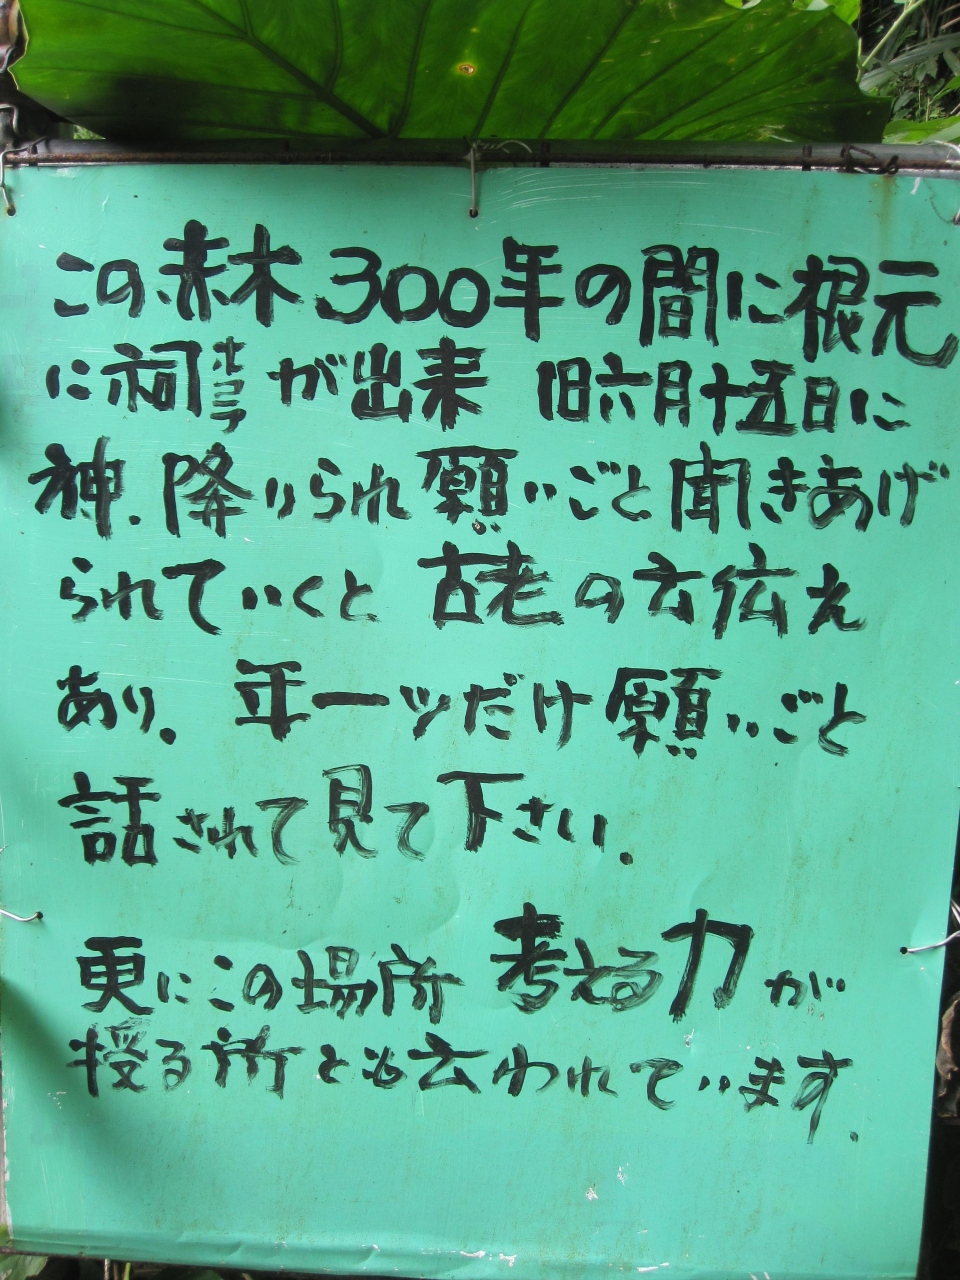 この赤木300年の間に根元
に祠ホコラが出来 旧六月十五日に
神.降りられ願いごと聞きあげ
られていくと 古老の云伝え
あり. 年一ツだけ願いごと
話されて見て下さい.
更にこの場所 考える力が
授る所とも云われています.